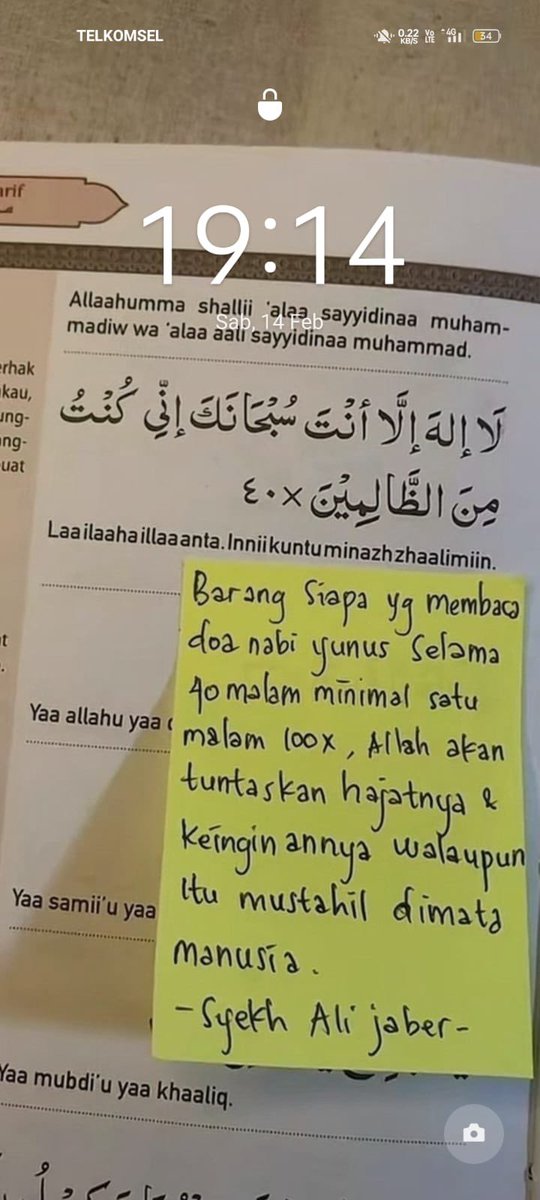 TELKOMSEL 0.22 KB/S Vo LTE 4G 34
arif
19:14
Allaahumma shallii 'alaa sayyidinaa muham-
madiw wa 'alaa aali sayyidinaa muhammad.
Sab, 14 Feb
erhak
kau,
ung-
ang-
uat
لَا إِلهَ إِلَّا أَنْتَ سُبْحَانَكَ إِنِّي كُنْتُ
مِنَ الظَّالِمِيْنَ ×٤٠
Laa ilaaha illaa anta. Innii kuntu minazh zhaalimiin.
Barang Siapa yg membaca
doa nabi yunus Selama
40 malam minimal satu
malam 100x, Allah akan
tuntaskan hajatnya &
keinginannya walaupun
itu mustahil dimata
manusia.
-Syekh Ali jaber-
Yaa allahu yaa
Yaa samii'u yaa
Yaa mubdi'u yaa khaaliq.